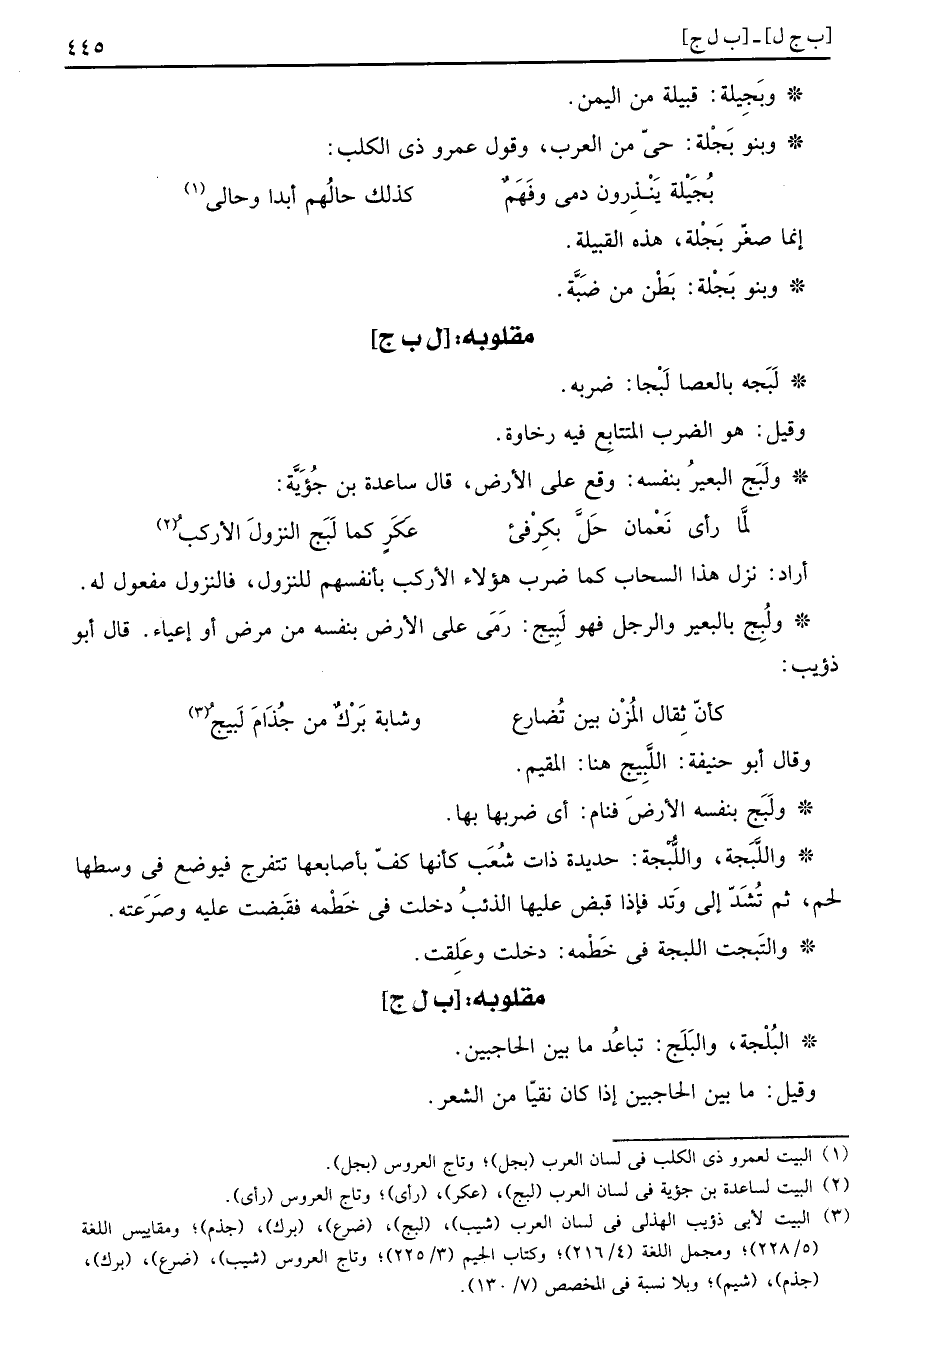 [ب ج ل] ـ [ب ل ج] ٤٤٥
* وبَجِيلة: قبيلة من اليمن.
* وبنو بَجْلة: حىّ من العرب، وقول عمرو ذى الكلب:
بُجَيْلة يَنْذِرون دمى وفَهَمٌ كذلك حالُهم أبدا وحالى(١)
إنما صغّر بَجْلة، هذه القبيلة.
* وبنو بَجْلة: بَطْن من ضَبَّة.
مقلوبه: [ل ب ج]
* لَبَجه بالعصا لَبْجا: ضربه.
وقيل: هو الضرب المتتابِع فيه رخاوة.
* ولَبَج البعيرُ بنفسه: وقع على الأرض، قال ساعدة بن جُؤَيَّة:
لمَّا رأى نَعْمان حَلَّ بكِرْفئ عَكَرٍ كما لَبَج النزولَ الأركبُ(٢)
أراد: نزل هذا السحاب كما ضرب هؤلاء الأركب بأنفسهم للنزول، فالنزول مفعول له.
* ولُبِج بالبعير والرجل فهو لَبِيج: رَمَى على الأرض بنفسه من مرض أو إعياء. قال أبو
ذؤيب:
كأنّ ثِقال المُزْن بين تُضارع وشابة بَرْكٌ من جُذَامَ لَبيجُ(٣)
وقال أبو حنيفة: اللَّبِيج هنا: المقيم.
* ولَبَج بنفسه الأرضَ فنام: أى ضربها بها.
* واللَّبَجة، واللُّبْجة: حديدة ذات شُعَب كأنها كفّ بأصابعها تتفرج فيوضع فى وسطها
لحم، ثم تُشَدّ إلى وَتد فإذا قبض عليها الذئبُ دخلت فى خَطْمه فقَبضت عليه وصَرَعَته.
* والتَبجت اللبجة فى خَطْمه: دخلت وعَلِقت.
مقلوبه: [ب ل ج]
* البُلْجة، والبَلَج: تباعُد ما بين الحاجبين.
وقيل: ما بين الحاجبين إذا كان نقيّا من الشعر.
(١) البيت لعمرو ذى الكلب فى لسان العرب (بجل)؛ وتاج العروس (بجل).
(٢) البيت لساعدة بن جؤية فى لسان العرب (لبج)، (عكر)، (رأى)؛ وتاج العروس (رأى).
(٣) البيت لأبى ذؤيب الهذلى فى لسان العرب (شيب)، (لبج)، (ضرع)، (برك)، (جذم)؛ ومقاييس اللغة
(٥/ ٢٢٨)؛ ومجمل اللغة (٤/ ٢١٦)؛ وكتاب الجيم (٣/ ٢٢٥)؛ وتاج العروس (شيب)، (ضرع)، (برك)،
(جذم)، (شيم)؛ وبلا نسبة فى المخصص (٧/ ١٣٠).